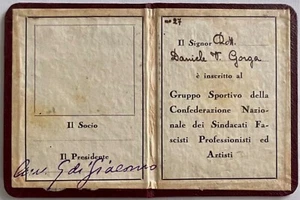 Il Socio
Il Presidente
Giacomo
nº 27
Il Signor Dott.
Daniele V. Gorga
è inscritto al
Gruppo Sportivo della
Confederazione Nazio-
nale dei Sindacati Fa-
scisti Professionisti ed
Artisti